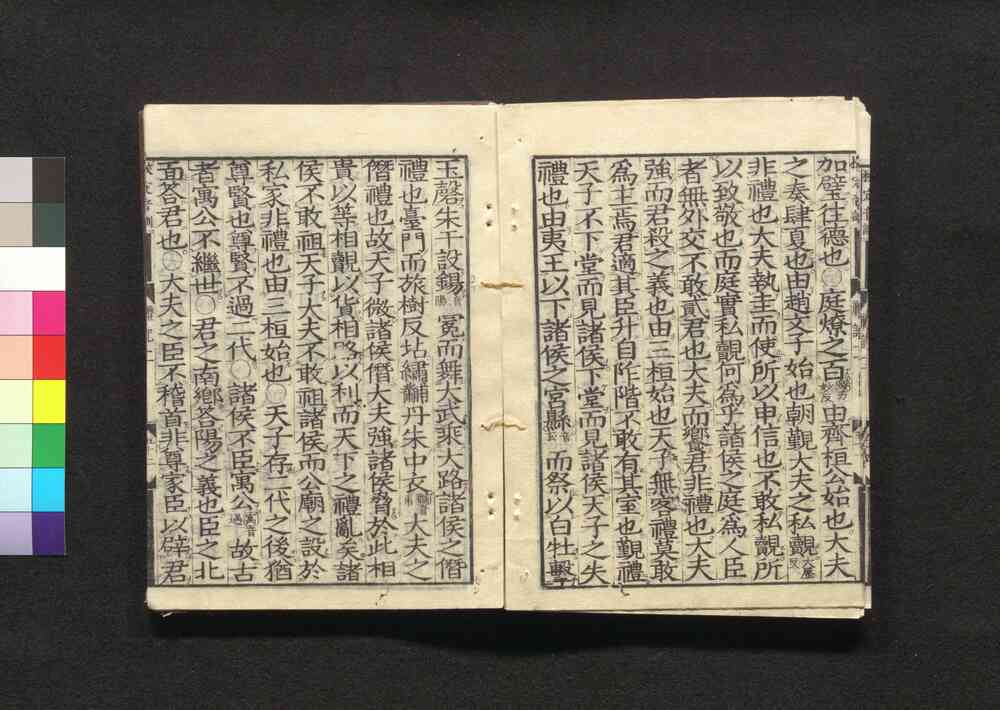 加璧往德也○庭燎之百由齊桓公始也大夫
之奏肆夏也由趙文子始也朝覲大夫之私覿
非禮也大夫執圭而使所以申信也不敢私覿所
以致敬也而庭實私覿何為乎諸侯之庭為人臣
者無外交不敢貳君也大夫而饗君非禮也大夫
強而君殺之義也由三桓始也天子無客禮莫敢
為主焉君適其臣升自阼階不敢有其室也覲禮
天子不下堂而見諸侯下堂而見諸侯天子之失
禮也由夷王以下諸侯之宮縣而祭以白牡擊
玉磬朱干設鍚冕而舞大武乘大路諸侯之僭
禮也臺門而旅樹反坫繡黼丹朱中衣大夫之
僭禮也故天子微諸侯僭大夫強諸侯脅於此相
貴以等相覿以貨相賂以利而天下之禮亂矣諸
侯不敢祖天子大夫不敢祖諸侯而公廟之設於
私家非禮也由三桓始也○天子存二代之後猶
尊賢也尊賢不過二代○諸侯不臣寓公故古
者寓公不繼世○君之南鄉答陽之義也臣之北
面答君也○大夫之臣不稽首非尊家臣以辟君